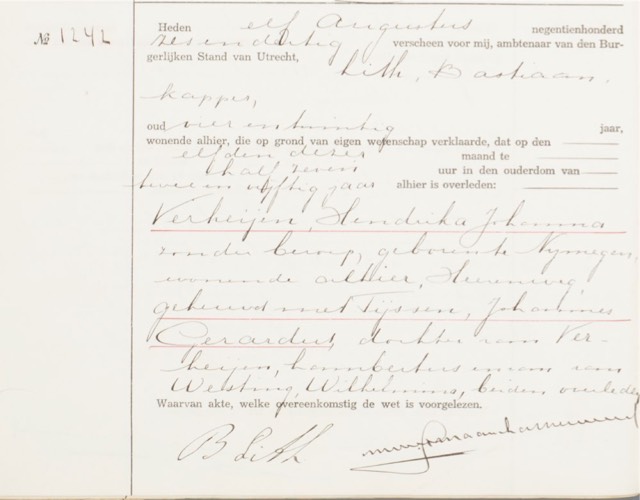 № 1242
Heden elf Augustus negentienhonderd
zes en dertig verscheen voor mij, ambtenaar van den Bur-
gerlijken Stand van Utrecht,
Lith, Bastiaan,
kapper,
oud vier en twintig jaar,
wonende alhier, die op grond van eigen wetenschap verklaarde, dat op den
elfden dezer maand te
half zeven uur in den ouderdom van
twee en vijftig jaar alhier is overleden:
Verheijen, Hendrika Johanna
zonder beroep, geboren te Nijmegen,
wonende alhier,
gehuwd met Tijssen, Johannes
Gerardus, dochter van Ver-
heijen, Lambertus en van
Welsing, Wilhelmina, beiden overleden
Waarvan akte, welke overeenkomstig de wet is voorgelezen.
B Lith